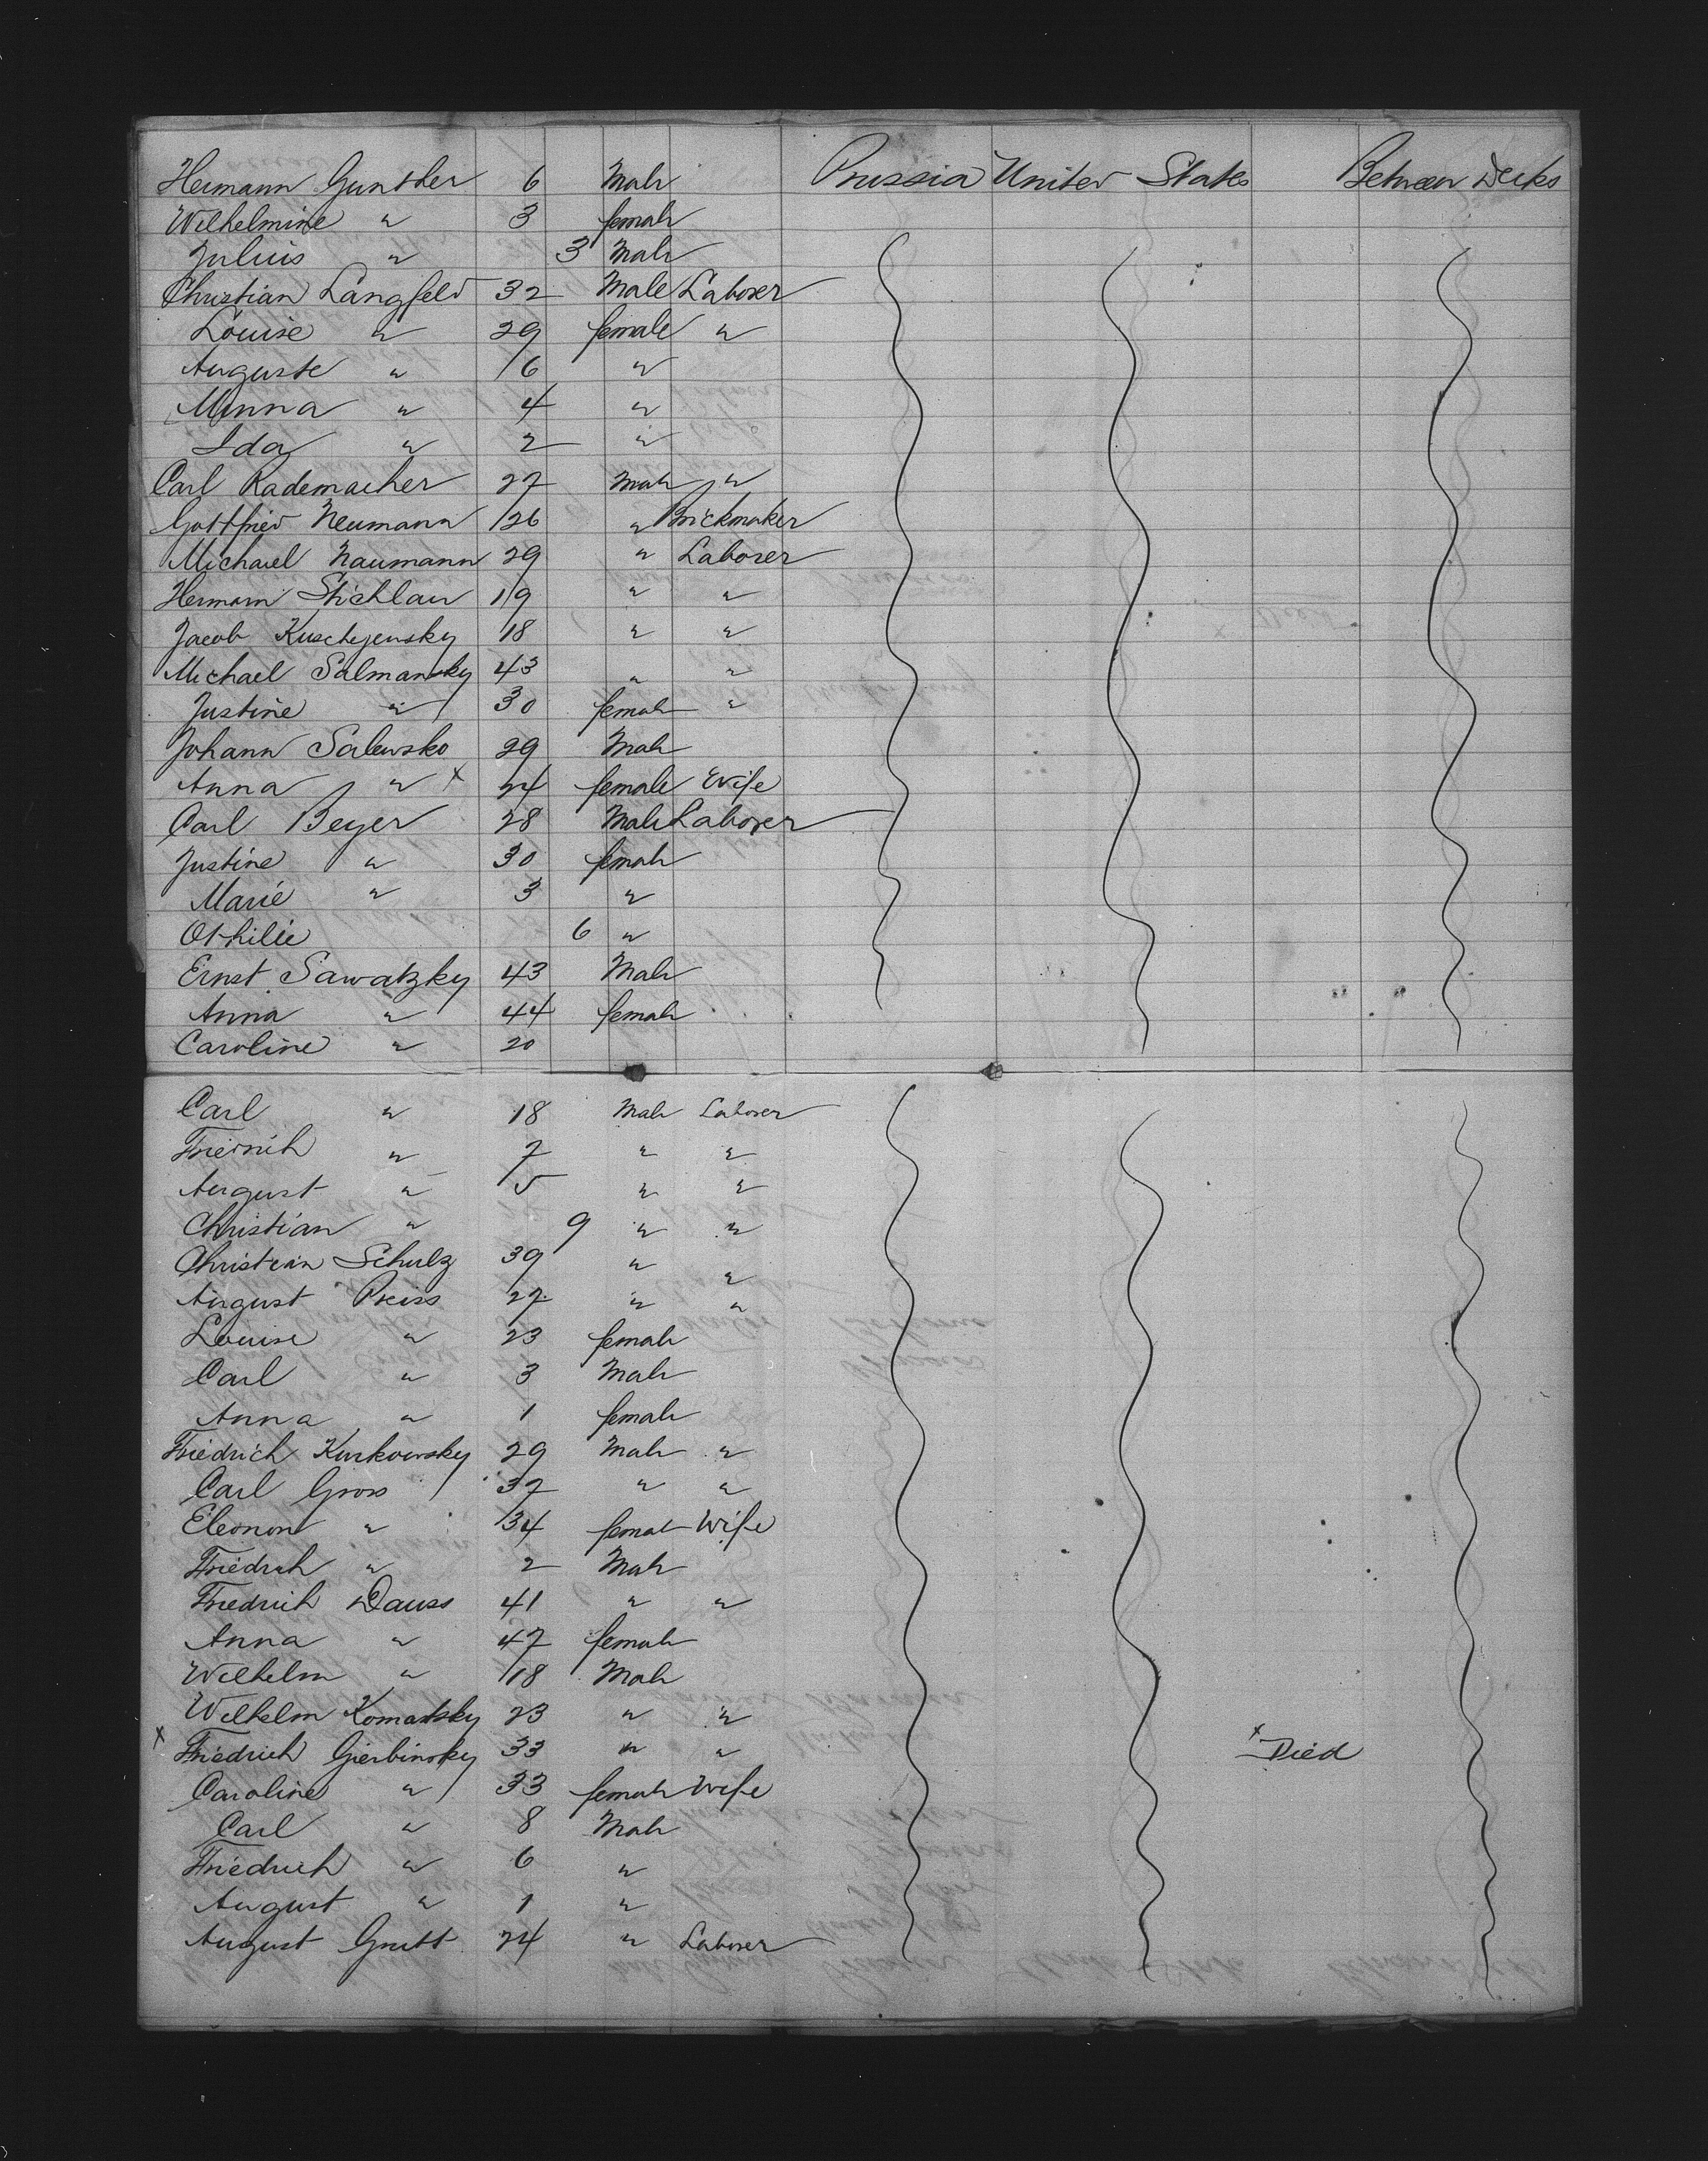 Hermann Gunther 6 Male Prussia United States Between Decks
Wilhelmine " 3 female
Julius " 3 Male
Christian Langfeld 32 Male Laborer
Louise " 29 female "
Auguste " 6 "
Minna " 4 "
Ida " 2 "
Carl Rademacher 27 Male "
Gottfried Neumann 26 " Brickmaker
Michael Naumann 29 " Laborer
Hermann Stichlau 19 " "
Jacob 18 " "
Michael Salmansky 43 " "
Justine " 30 female "
Johann Salewsko 29 Male
Anna " x 24 female Wife
Carl Beyer 28 Male Laborer
Justine " 30 female
Marie " 3 "
Othilie 6 "
Ernst Sawatzky 43 Male
Anna " 44 female
Caroline " 20
Carl " 18 Male Laborer
Friedrich " 7 " "
August " 5 " "
Christian " 9 " "
Christian Schulz 39 " "
August Preiss 27 " "
Louise " 23 female
Carl " 3 Male
Anna " 1 female
Friedrich Kurkowsky 29 Male "
Carl Gross 37 " "
Eleonore " 34 female Wife
Friedrich " 2 Male
Friedrich Dauss 41 " "
Anna " 47 female
Wilhelm " 18 Male
Wilhelm Komatsky 23 " "
x Friedrich Gierbinsky 33 " " x Died
Caroline " 33 female Wife
Carl " 8 Male
Friedrich " 6 "
August " 1 "
August Grutt 24 " Laborer